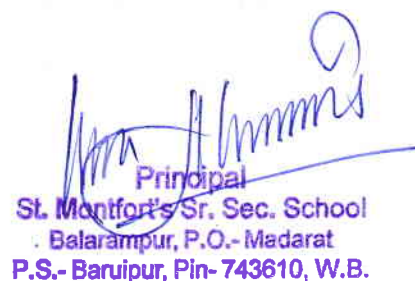 Principal
St. Montfort's Sr. Sec. School
Balarampur, P.O.- Madarat
P.S.- Baruipur, Pin- 743610, W.B.